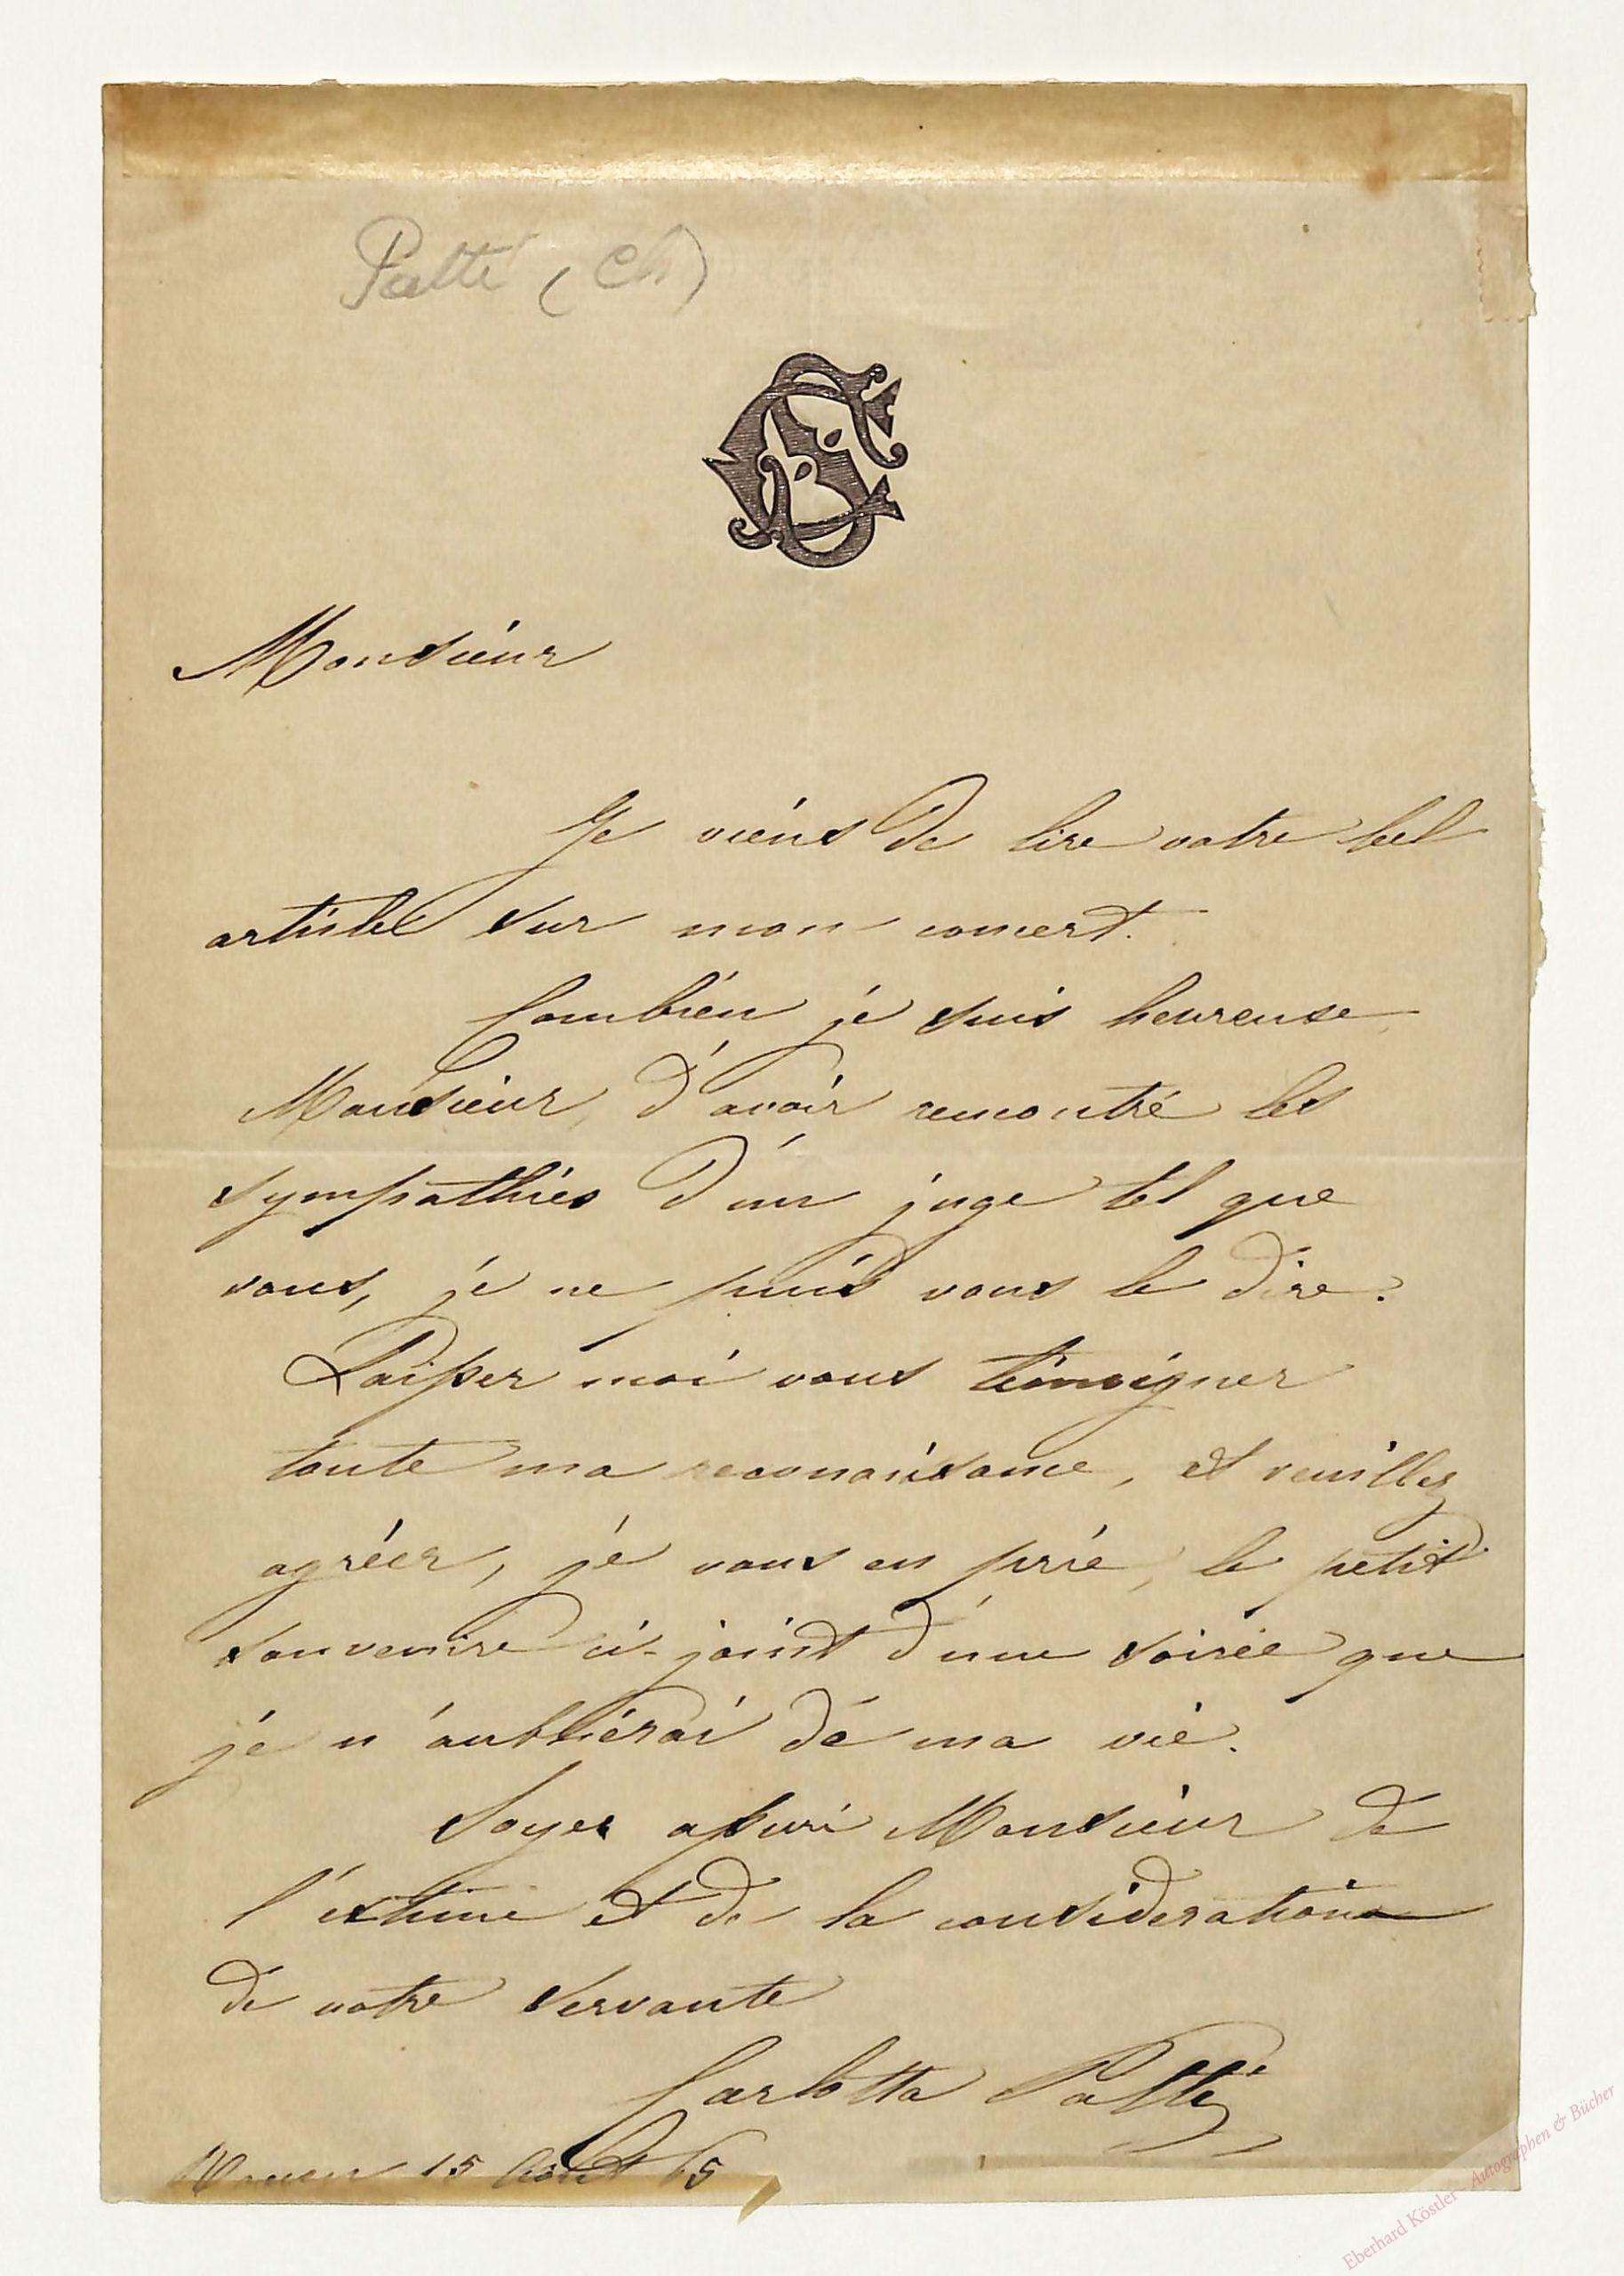 Patti (Ch)
Monsieur
Je viens de lire votre bel
article sur mon concert.
Combien je suis heureuse
Monsieur, d'avoir rencontré les
sympathies d'un juge tel que
vous, je ne puis vous le dire.
Laisser moi vous témoigner
toute ma reconaissance, et veuillez
agréer, je vous en prie, le petit
souvenire ci-joint d'une soirée que
je n'oublierai de ma vie.
Soyez assuré Monsieur de
l'estime et de la consideration
de votre servante
Carlotta Patti
15 Août 65
Eberhard Köstler - Autographen & Bücher